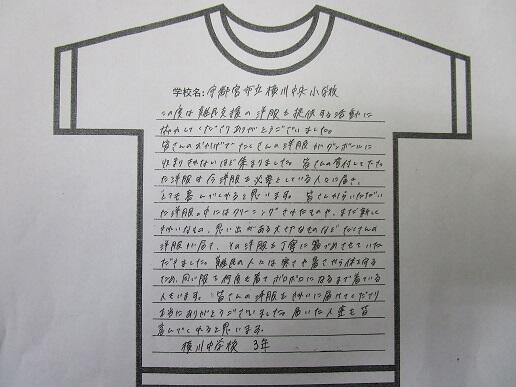 学校名: 宇都宮市立横川中央小学校
この度は難民支援の洋服を提供する活動に
協力してくださりありがとうございました。
皆さんのおかげでたくさんの洋服がダンボールに
収まりきれないほど集まりました。皆さんの寄付してくださっ
た洋服は今洋服を必要としている人々に届き、
とても喜んでくれると思います。皆さんからいただい
た洋服の中にはクリーニングされたものや、まだ新しく
きれいなもの、思い出がある大切なものなどたくさんの
洋服が届き、その洋服を丁寧に箱づめさせていた
だきました。難民の人には寒さや暑さから体を守る
ため、同じ服を何度も着てボロボロになるまで着ている
人もいます。皆さんの洋服をきれいに届けてくださり
本当にありがとうございました。届いた人達も皆
喜んでくれると思います。
横川中学校 3年